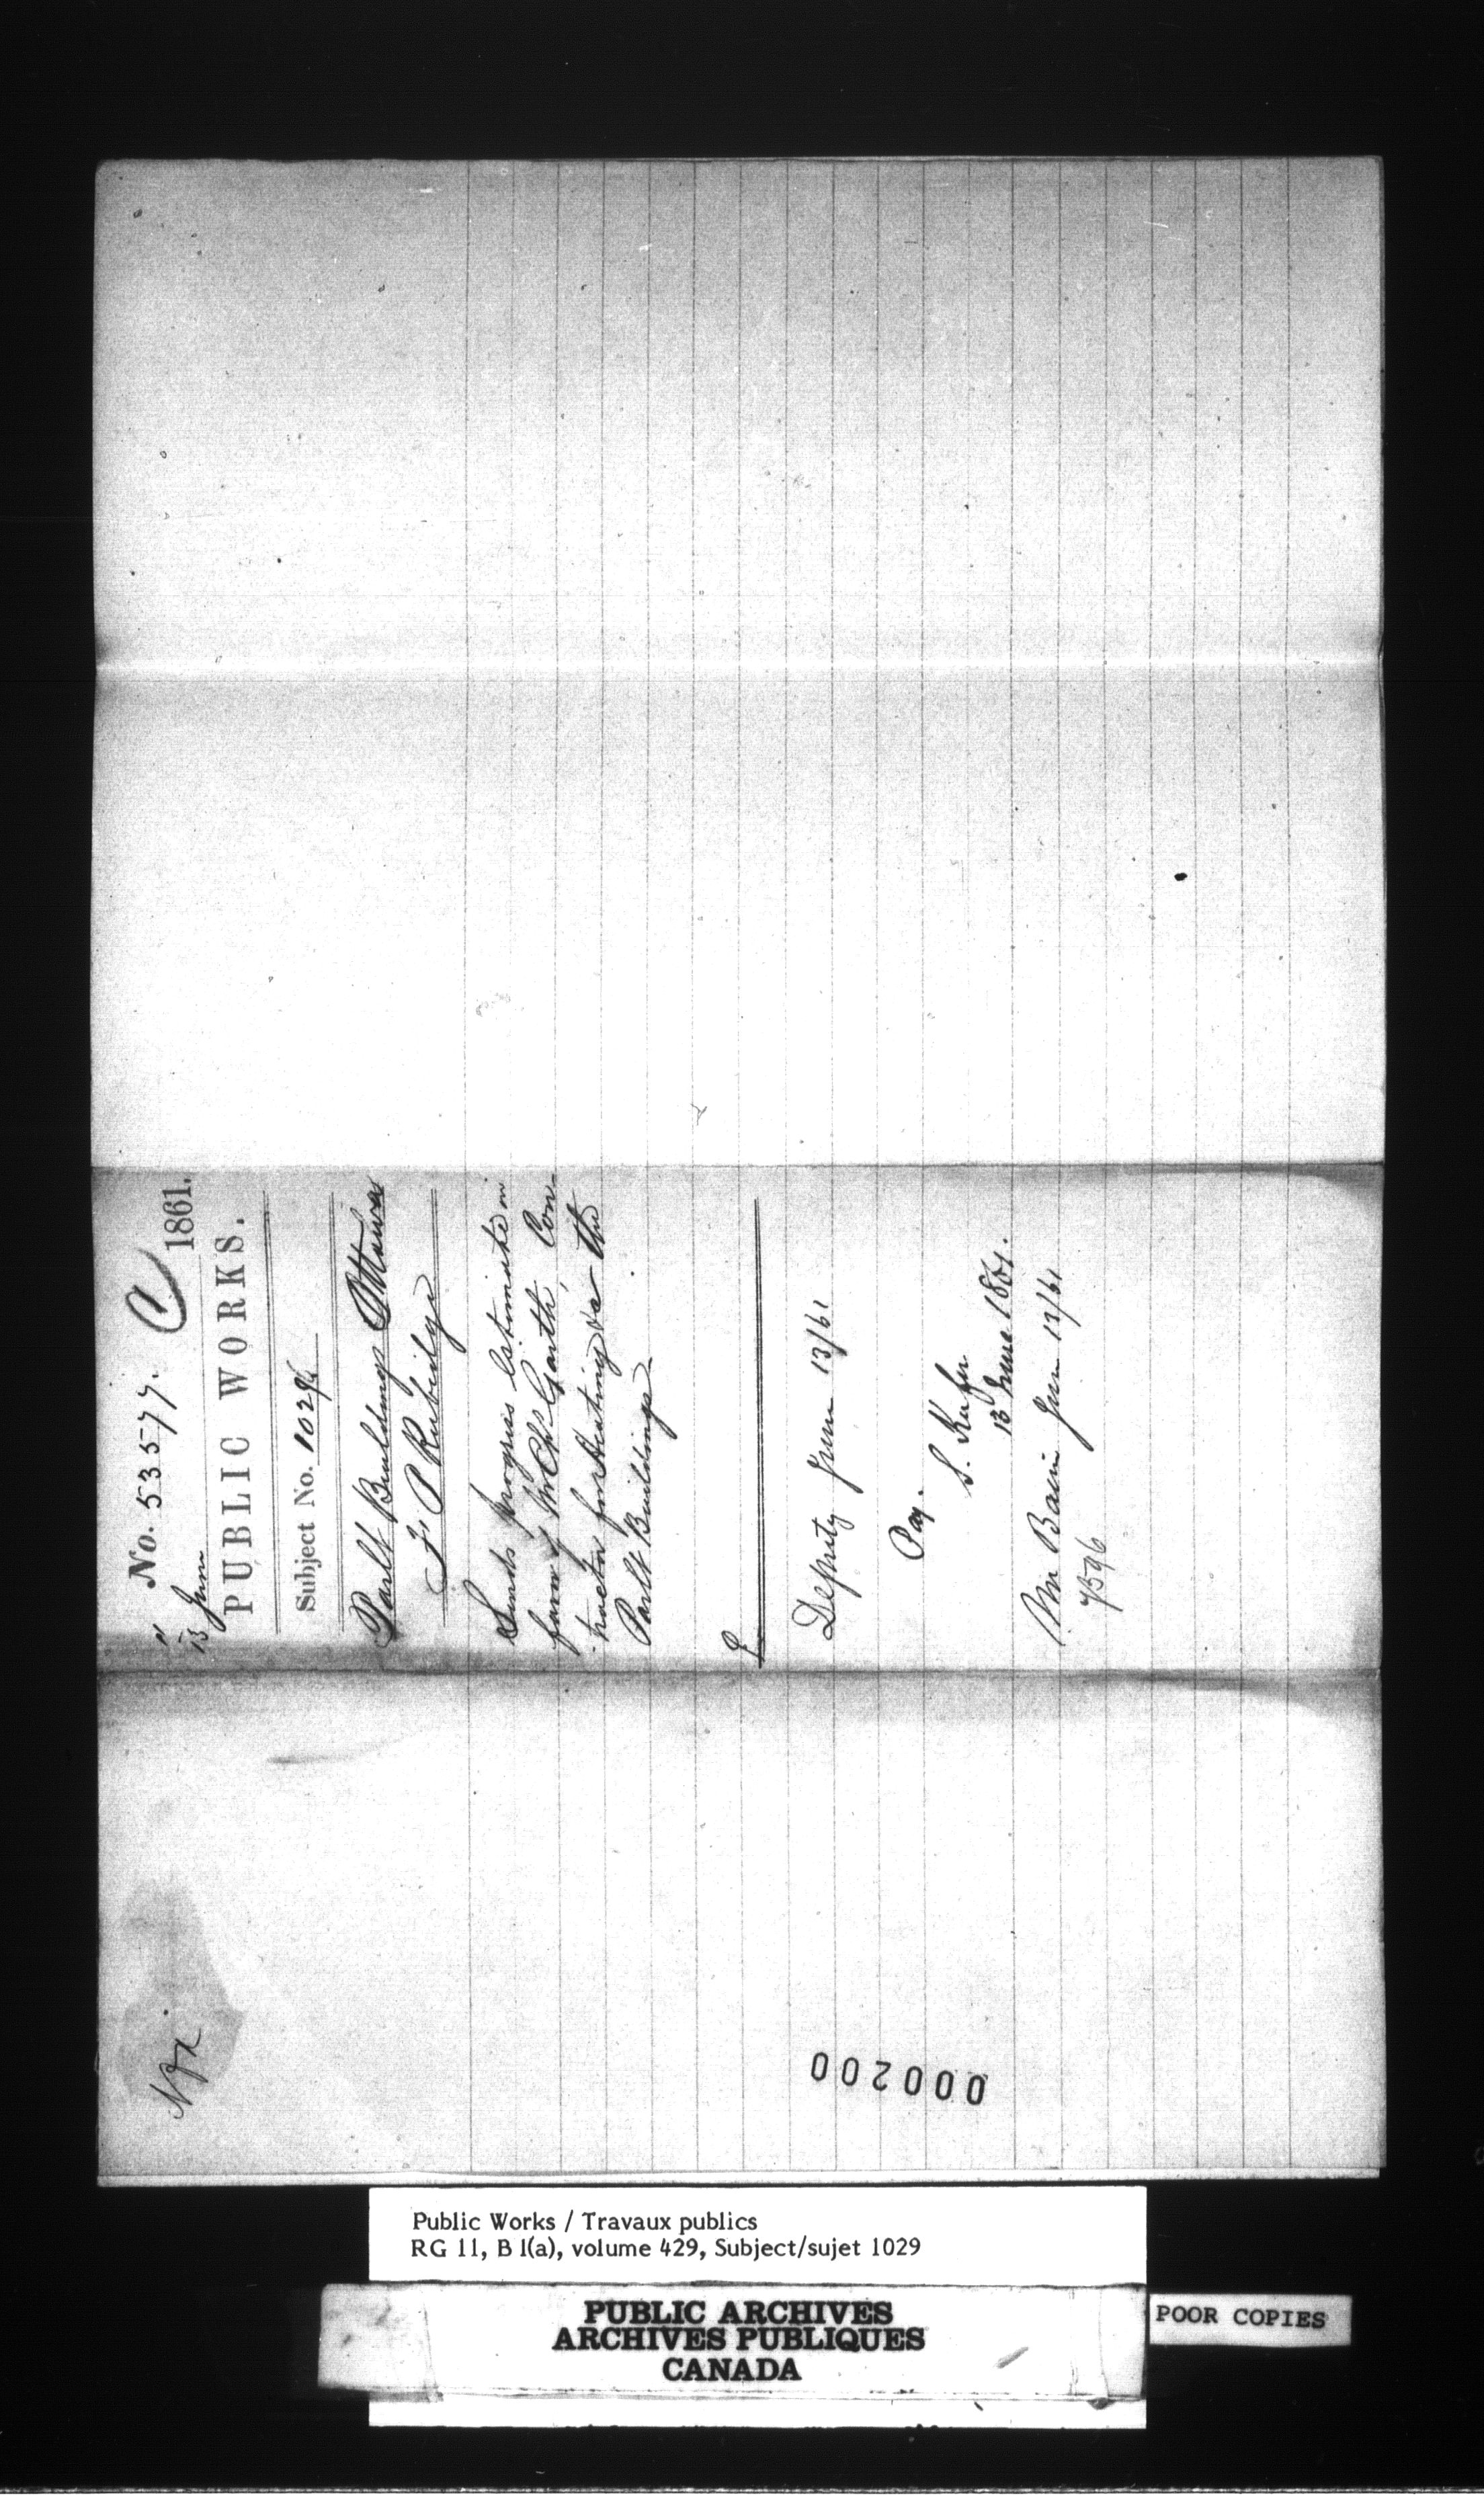 No. 53577. C
" 13 June 1861.
PUBLIC WORKS.
Subject No. 1029
Parlt Buildings Ottawa
F. P Rubidge
Sends progress Estimate in
favr of Mr Chs Garth, Con-
-tractor for Heating &a the
Parlt Buildings
Deputy June 13/61
Pay.
S. Keefer
13 June 1861.
Mr Bain June 13/61
7596
000200
Public Works / Travaux publics
RG 11, B 1(a), volume 429, Subject/sujet 1029
PUBLIC ARCHIVES
ARCHIVES PUBLIQUES
CANADA
POOR COPIES